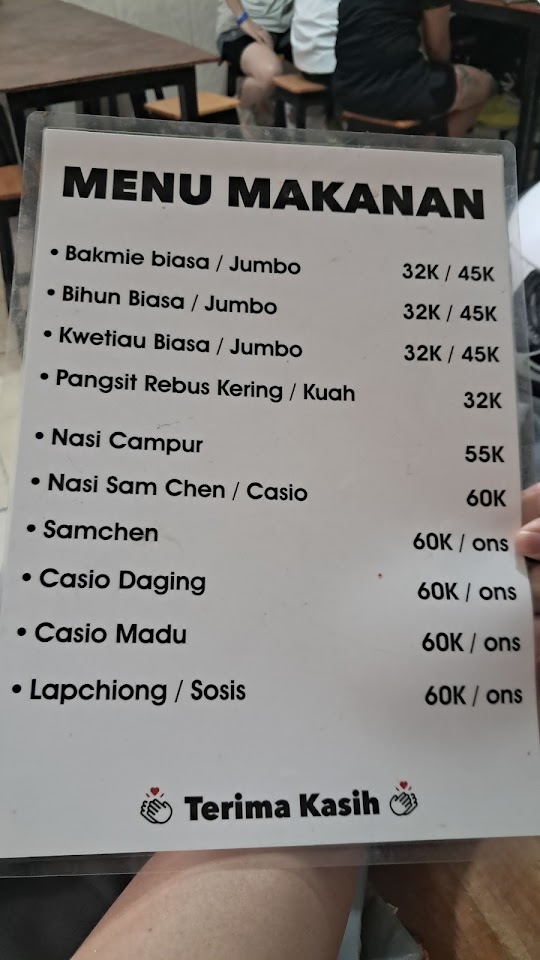 MENU MAKANAN
• Bakmie biasa / Jumbo 32K / 45K
• Bihun Biasa / Jumbo 32K / 45K
• Kwetiau Biasa / Jumbo 32K / 45K
• Pangsit Rebus Kering / Kuah 32K
• Nasi Campur 55K
• Nasi Sam Chen / Casio 60K
• Samchen 60K / ons
• Casio Daging 60K / ons
• Casio Madu 60K / ons
• Lapchiong / Sosis 60K / ons
Terima Kasih